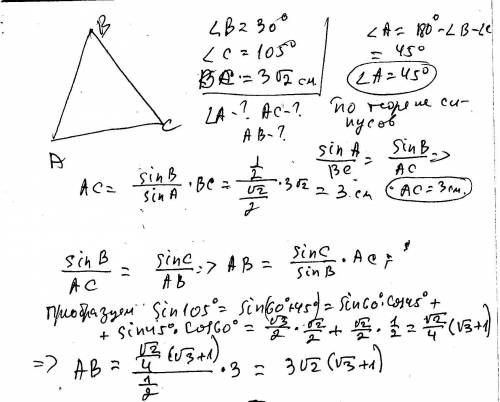 B
A
C
∠B = 30°
∠C = 105°
BC = 3√2 см.
∠A - ? AC - ?
AB - ?
∠A = 180° - ∠B - ∠C
= 45°
∠A = 45°
по теореме синусов
sin A / BC = sin B / AC =>
AC = sin B / sin A · BC = (1/2) / (√2/2) · 3√2 = 3 см
AC = 3 см.
sin B / AC = sin C / AB => AB = sin C / sin B · AC =
преобразуем sin 105° = sin(60° + 45°) = sin 60° · cos 45° +
+ sin 45° · cos 60° = √3/2 · √2/2 + √2/2 · 1/2 = √2/4 (√3 + 1)
=> AB = (√2/4 (√3 + 1)) / (1/2) · 3 = 3√2 (√3 + 1)